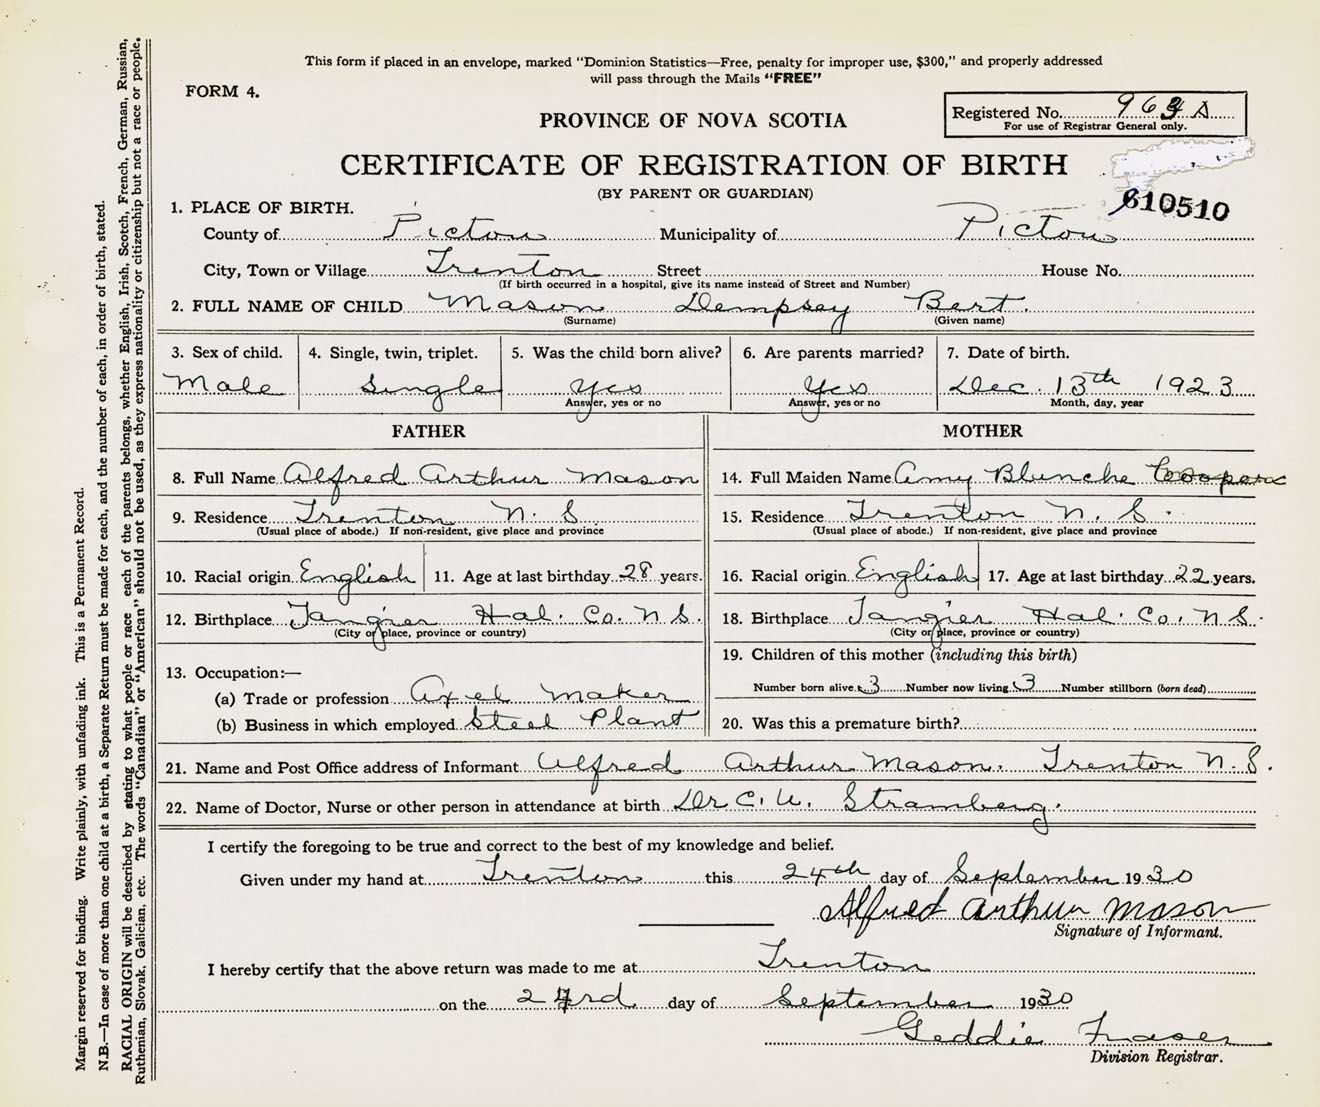 This form if placed in an envelope, marked "Dominion Statistics—Free, penalty for improper use, $300," and properly addressed
will pass through the Mails "FREE"
FORM 4.
Registered No. 963 A
For use of Registrar General only.
PROVINCE OF NOVA SCOTIA
CERTIFICATE OF REGISTRATION OF BIRTH
(BY PARENT OR GUARDIAN)
610510
1. PLACE OF BIRTH.
County of Pictou Municipality of Pictou
City, Town or Village Trenton Street House No.
(If birth occurred in a hospital, give its name instead of Street and Number)
2. FULL NAME OF CHILD Mason Dempsey Bert.
(Surname) (Given name)
3. Sex of child. 4. Single, twin, triplet. 5. Was the child born alive? 6. Are parents married? 7. Date of birth.
Male Single Yes Yes Dec. 13th 1923
Answer, yes or no Answer, yes or no Month, day, year
FATHER MOTHER
8. Full Name Alfred Arthur Mason 14. Full Maiden Name Amy Blanche Cooper
9. Residence Trenton N. S. 15. Residence Trenton N. S.
(Usual place of abode.) If non-resident, give place and province (Usual place of abode.) If non-resident, give place and province
10. Racial origin English 11. Age at last birthday 28 years. 16. Racial origin English 17. Age at last birthday 22 years.
12. Birthplace Tangier Hal. Co. N S. 18. Birthplace Tangier Hal. Co. N S.
(City or place, province or country) (City or place, province or country)
19. Children of this mother (including this birth)
13. Occupation:—
Number born alive 3 Number now living 3 Number stillborn (born dead)
(a) Trade or profession Axel Maker
(b) Business in which employed Steel Plant 20. Was this a premature birth?
21. Name and Post Office address of Informant Alfred Arthur Mason. Trenton N. S.
22. Name of Doctor, Nurse or other person in attendance at birth Dr C. W. Stramberg.
I certify the foregoing to be true and correct to the best of my knowledge and belief.
Given under my hand at Trenton this 24th day of September 1930
Alfred Arthur Mason
Signature of Informant.
I hereby certify that the above return was made to me at Trenton
on the 24rd day of September 1930
Geddie Fraser
Division Registrar.
Margin reserved for binding. Write plainly, with unfading ink. This is a Permanent Record.
N.B.—In case of more than one child at a birth, a Separate Return must be made for each, and the number of each, in order of birth, stated.
RACIAL ORIGIN will be described by stating to what people or race each of the parents belongs, whether English, Irish, Scotch, French, German, Russian,
Ruthenian, Slovak, Galician, etc. The words "Canadian" or "American" should not be used, as they express nationality or citizenship but not a race or people.